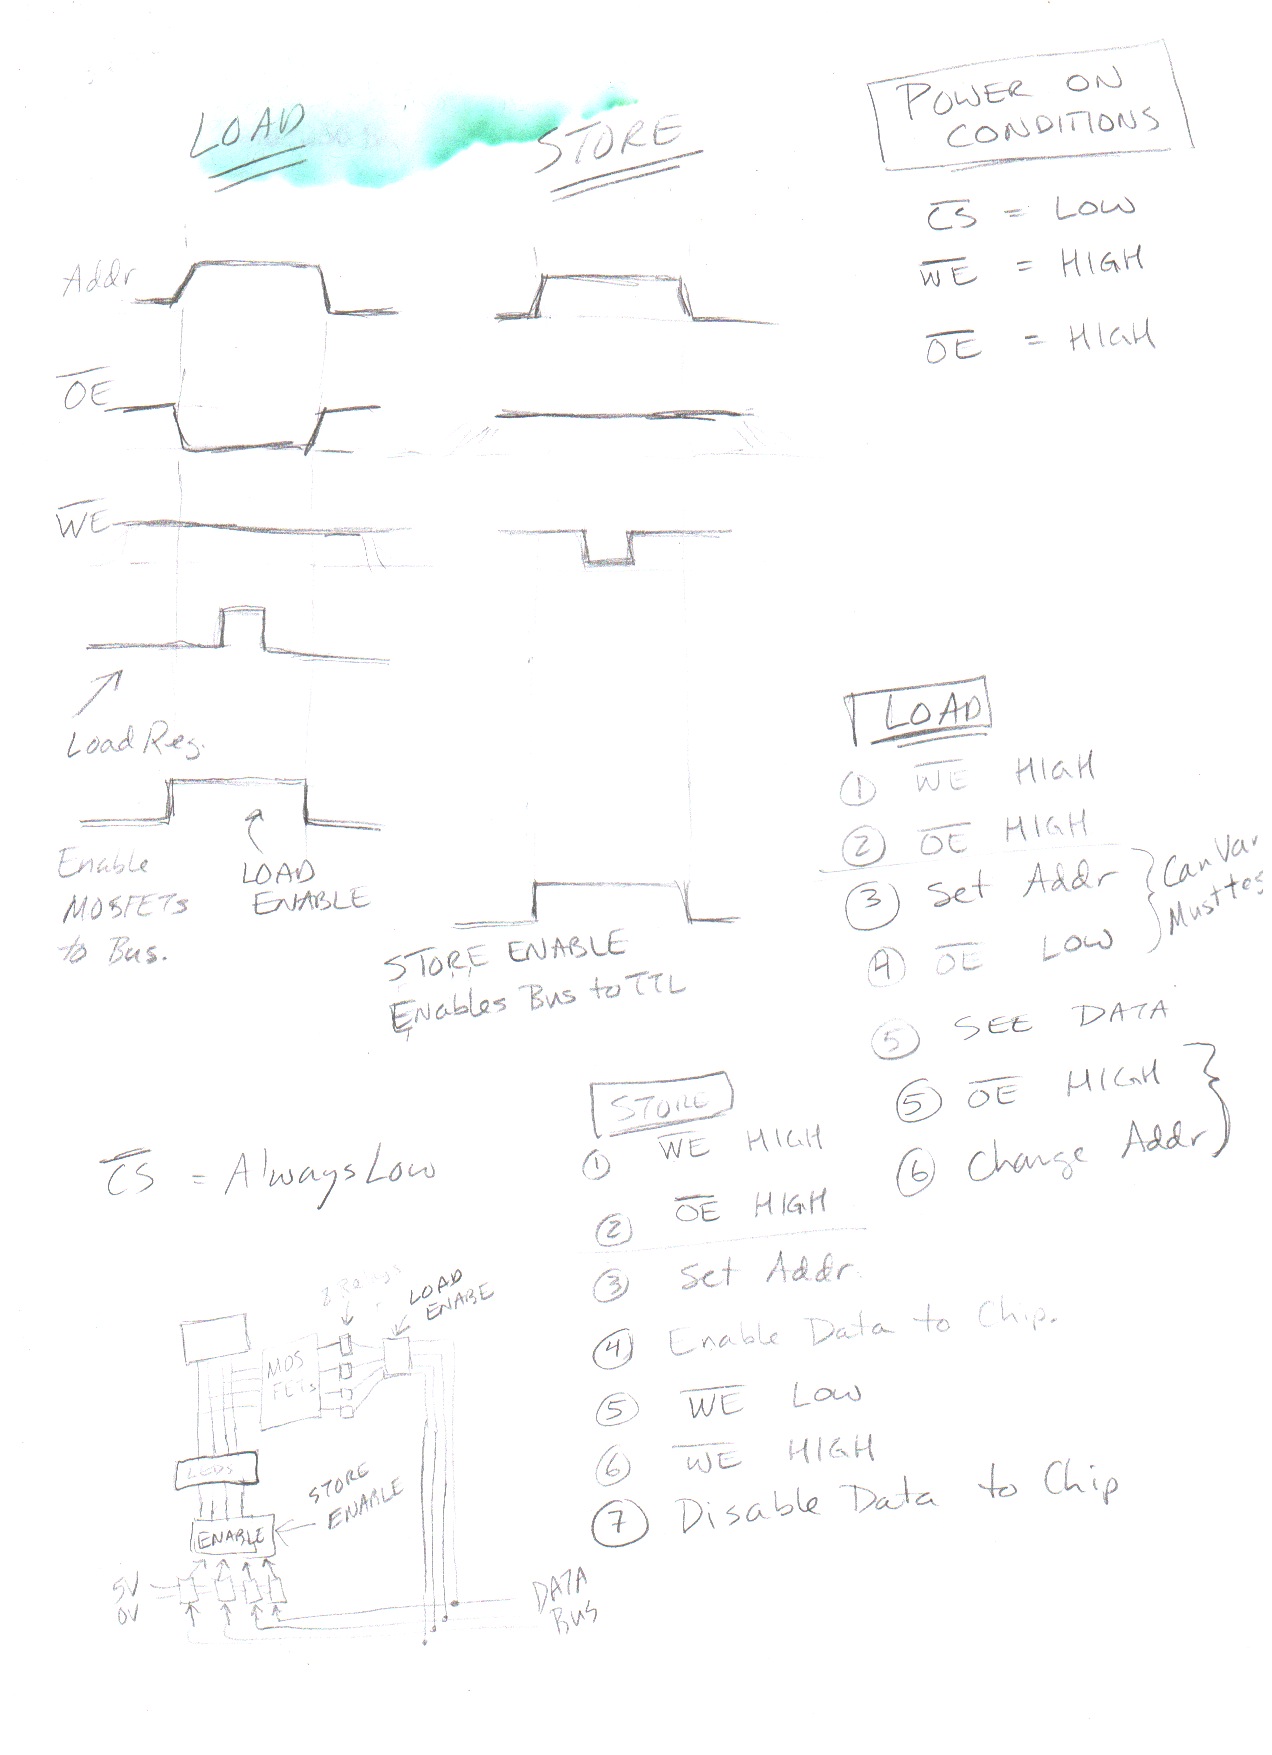 LOAD
STORE
POWER ON
CONDITIONS
C̅S̅ = LOW
W̅E̅ = HIGH
O̅E̅ = HIGH
Addr
O̅E̅
W̅E̅
Load Reg.
Enable
MOSFETs
to Bus.
LOAD
ENABLE
STORE ENABLE
Enables Bus to TTL
LOAD
① W̅E̅ HIGH
② O̅E̅ HIGH
③ Set Addr
④ O̅E̅ LOW
Can Var
Must
⑤ SEE DATA
⑤ O̅E̅ HIGH
⑥ Change Addr
STORE
① W̅E̅ HIGH
② O̅E̅ HIGH
③ Set Addr
④ Enable Data to Chip.
⑤ W̅E̅ Low
⑥ W̅E̅ HIGH
⑦ Disable Data to Chip
C̅S̅ = Always Low
LOAD
ENABE
MOS
FETs
LEDS
STORE
ENABLE
ENABLE
5V
0V
DATA
Bus